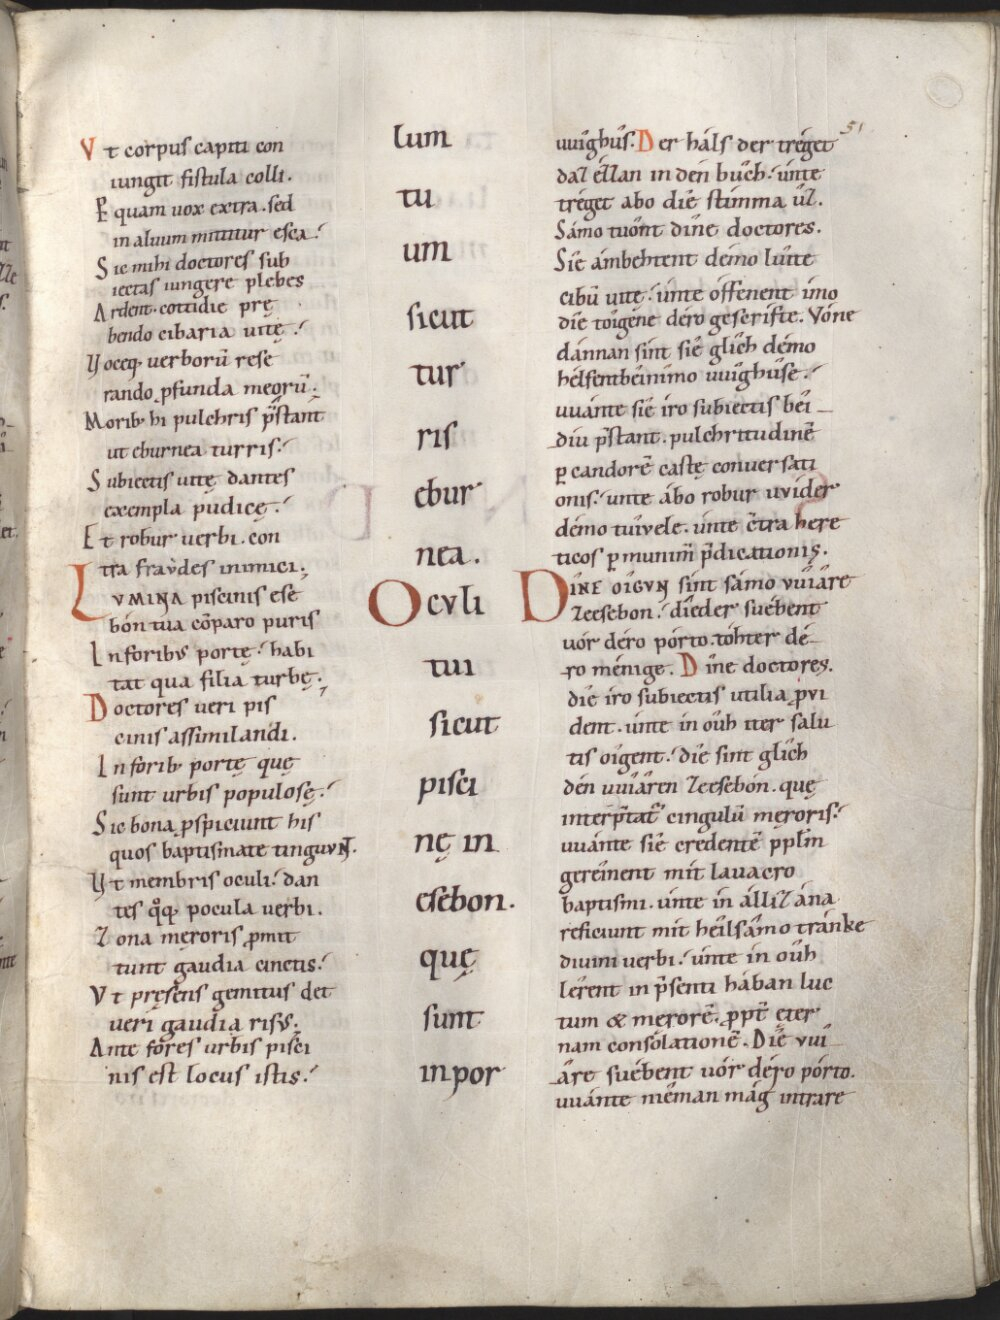 51
Vt corpus capiti con
iungit fistula colli.
Per quam uox extra. sed
in aluum mittitur esca.
Sic mihi doctores sub
iectas iungere plebes
Ardent. cottidie prę
bendo cibaria uitę.
Voceq; uerborū rese
rando ꝓfunda meorū.
Morib; hi pulchris p̄stant
ut eburnea turris.
Subiectis uitę dantes
exempla pudicę.
Et robur uerbi. con
tra fraVdes inimici.
LVMINA piscinis ese
bon tua cōparo puris
In foribVs portę. habi
tat qua filia turbę.
Doctores ueri pis
cinis assimilandi.
In forib; portę quę
sunt urbis populosę.
Sic bona ꝓspiciunt his
quos baptismate tingVNT.
Vt membris oculi. dan
tes q̊q; pocula uerbi.
Zona meroris ꝓmit
tunt gaudia cinctis.
Vt pręsens gemitus det
ueri gaudia risVs.
Ante fores urbis pisci
nis est locus istis.
lum
tu
um
sicut
tur
ris
ebur
nea.
OcVli
tui
sicut
pisci
nę in
esebon.
quę
sunt
in por
uuîghûs. Der háls der tréget
daz éllan in dén bûch. únte
tréget abo dîe stimma ûz.
Sámo tûont dîne doctores.
Sîe ámbehtent démo lûte
cibū uitę. únte óffenent ímo
dîe tôigene déro gescrífte. Vóne
dánnan sint sîe glîch démo
hélfentbéinimo uuîghûse.
uuánte sîe íro subiectis béi
diu p̄stant. pulchritudinē
ꝑ candorē castę conuersati
onis. únte ábo robur uuíder
démo tûivele. únte c̄tra here
ticos ꝑ munim̄ p̄dicationis.
DINE OIGVN sint sámo vuîâre
ze esebon. dîeder suébent
uór déro pórto tóhter dé
ro ménige. Dîne doctores.
die íro subiectis utilia ꝓvi
dent. únte ín ôuh iter salu
tis óigent. die sint glîch
dén uuîâren ze esebón. quę
interp̄tat᷑ cingulū męroris.
uuánte sîe credentē pplm̄
geréinent mít lauacro
baptismi. únte ín állizána
reficiunt mit héilsámo tránke
diuini uerbi. únte ín ôuh
lérent in p̄senti hában luc
tum & męrorē. ꝓpt̄ ęter
nam consolationē. Die vuî
âre suébent uór déro pórto.
uuánte nîeman mág intrare